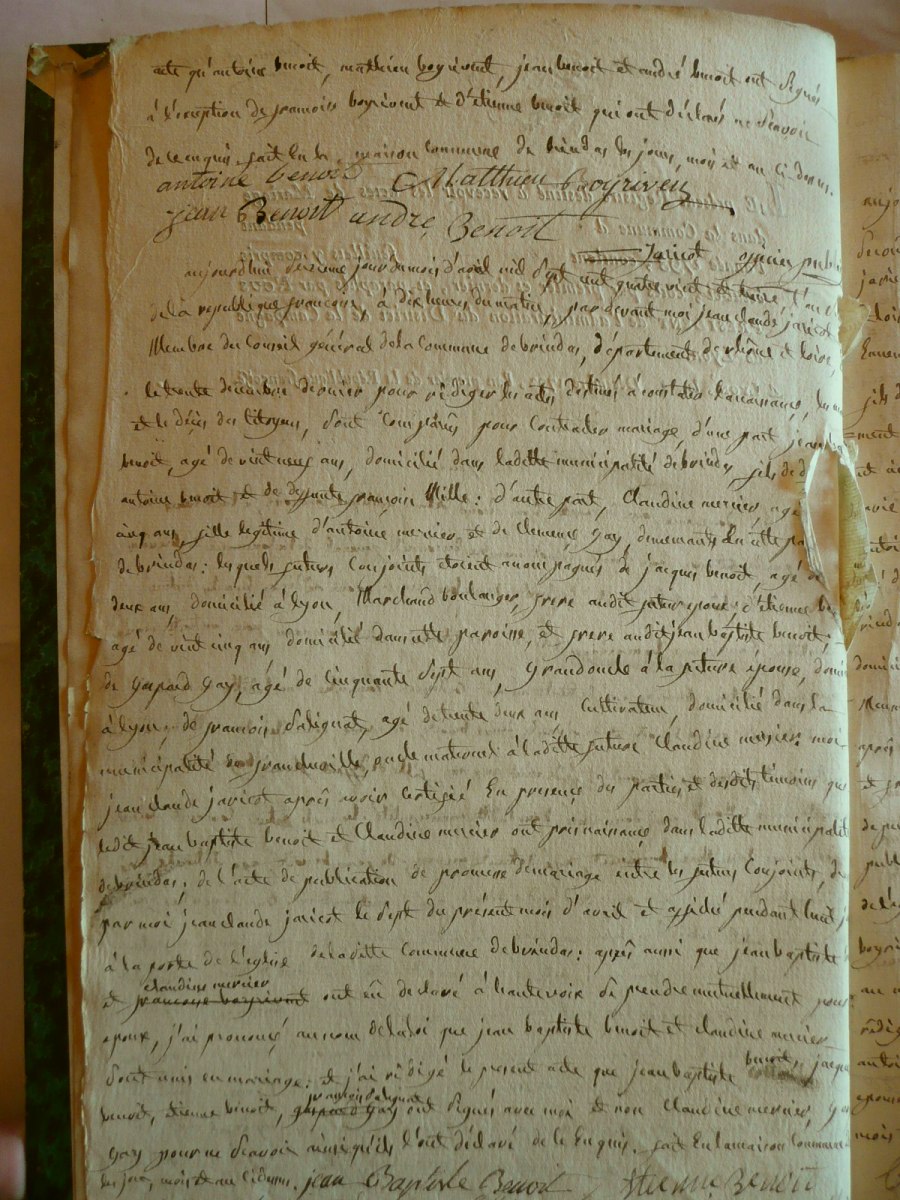 acte qu'antoine benoit, matthieu boyrivent, jean benoit et andré benoit ont signés
à l'exeption de francois boyrivent et d'etienne benoit qui ont déclarés ne sçavoir
de ce enquis. fait en la maison commune de brindas les jours, mois et an ci-dessus.
antoine benoit Matthieu Boyriven
jean Benoit andre Benoit
Jaricot officier public
aujourdhui vuime jour du mois d'avril mil sept cent quatre vint et treize l'an
de la republique francoise, à dix heures du matin, par devant moi jean claude jaricot
Membre du Conseil général de la Commune de brindas, département de rhône et loire,
le trente decembre dernier pour rédiger les actes destinés à constater les naissances, les
et le décès des Citoyens, sont Comparûs pour Contracter mariage, d'une part jean
benoit, agé de vint neuf ans, domicilié dans laditte municipalité de brindas, fils de
antoine benoit et de defunte françoise Mille: d'autre part, Claudine mercier agé
cinq ans, fille legitime d'antoine mercier et de Clemence Gay, demeurants En cette pa
de brindas: lesquels futurs Conjoints etoient accompagnés de jacques benoit, agé de
deux ans, domicilié à lyon, Marchand boulanger, frere audit futur epoux; d'etienne be
agé de vint cinq ans domicilié dans cette paroisse, et frere audit jean baptiste benoit,
de Gaspard Gay, agé de Cinquante sept ans, Grand oncle à la future épouse, domi
à lyon, de francois Salignat, agé de trente deux ans, Cultivateur, domicilié dans la
municipalité de, oncle maternel à laditte future Claudine mercier: moi
jean claude jaricot après avoir certifié En presence des parties et desdits témoins que
ledit jean baptiste benoit et Claudine mercier ont pris naissance, dans laditte municipalité
de brindas; de l'acte de publication de promesse de mariage entre les futurs Conjoints, de
par moi jean claude jaricot le sept du présent mois d'avril et affiché pendant huit j
à la porte de l'eglise de laditte Commune de brindas: après aussi que jean baptiste
claudine mercier
et francoise boyrivent ont eû declaré à haute voix se prendre mutuellement pour
epoux, j'ai prononcé au nom de la loi que jean baptiste benoit et claudine mercier
sont unis en mariage: et j'ai rédigé le present acte que jean baptiste benoit, jacque
francois Salignat
benoit, etienne benoit, gaspard Gay ont signés avec moi et non Claudine mercier,
Gay pour ne sçavoir ainsi qu'ils l'ont déclaré de ce Enquis. fait En la maison Commune
les jour, mois et an ci dessus. jean Baptiste Benoit Etienne Benoit